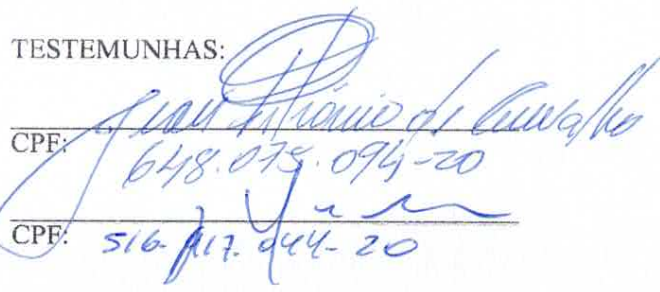 TESTEMUNHAS:
Antônio de Carvalho
CPF: 648.075.094-20
CPF: 516. 044-20